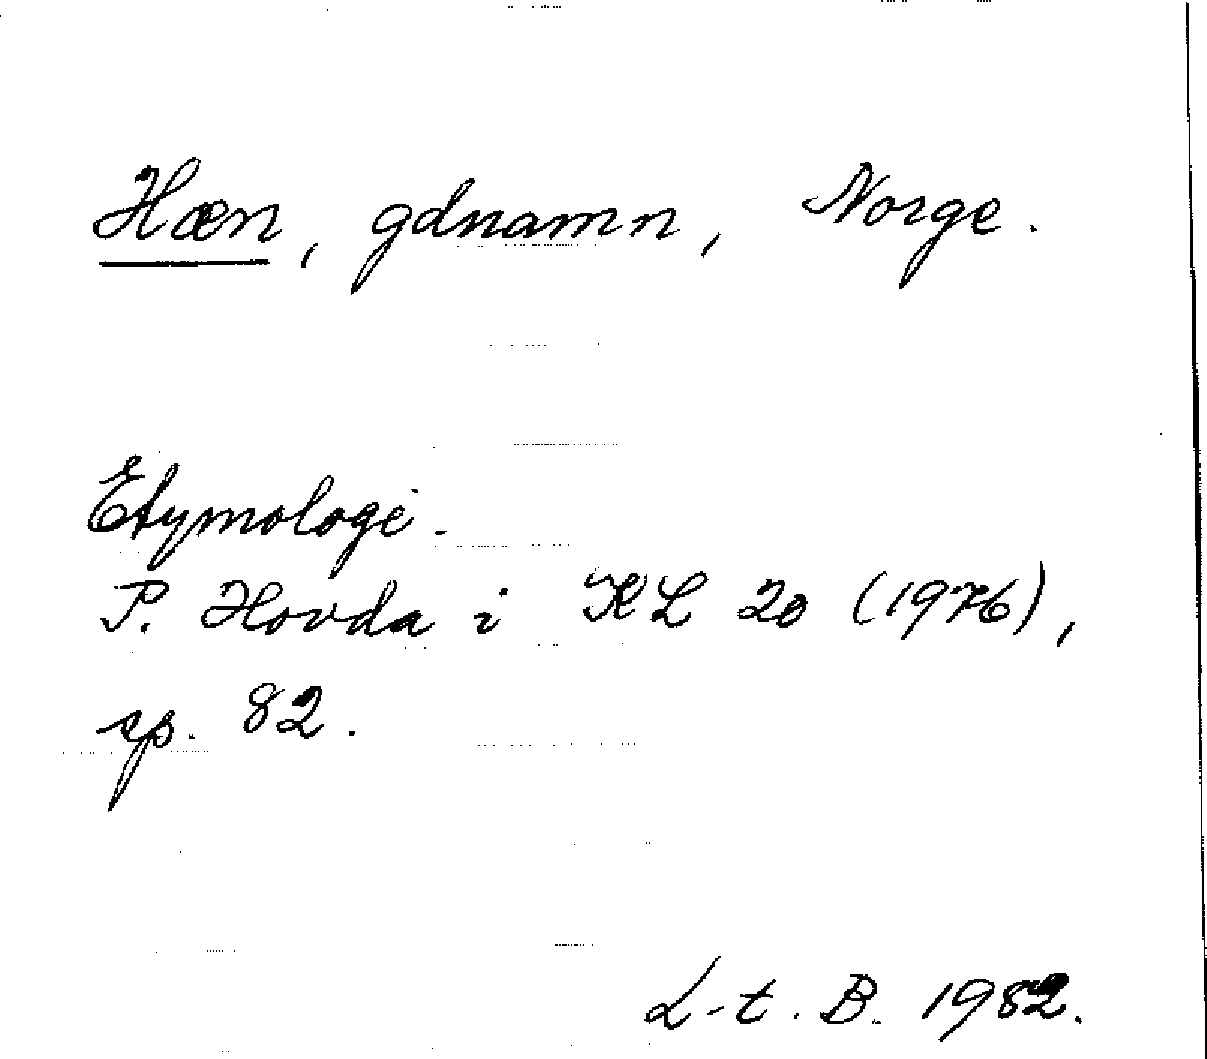 Hæn, gdnamn, Norge.
Etymologi.
P. Hovda i KL 20 (1976),
sp. 82.
L-t. B. 1982.